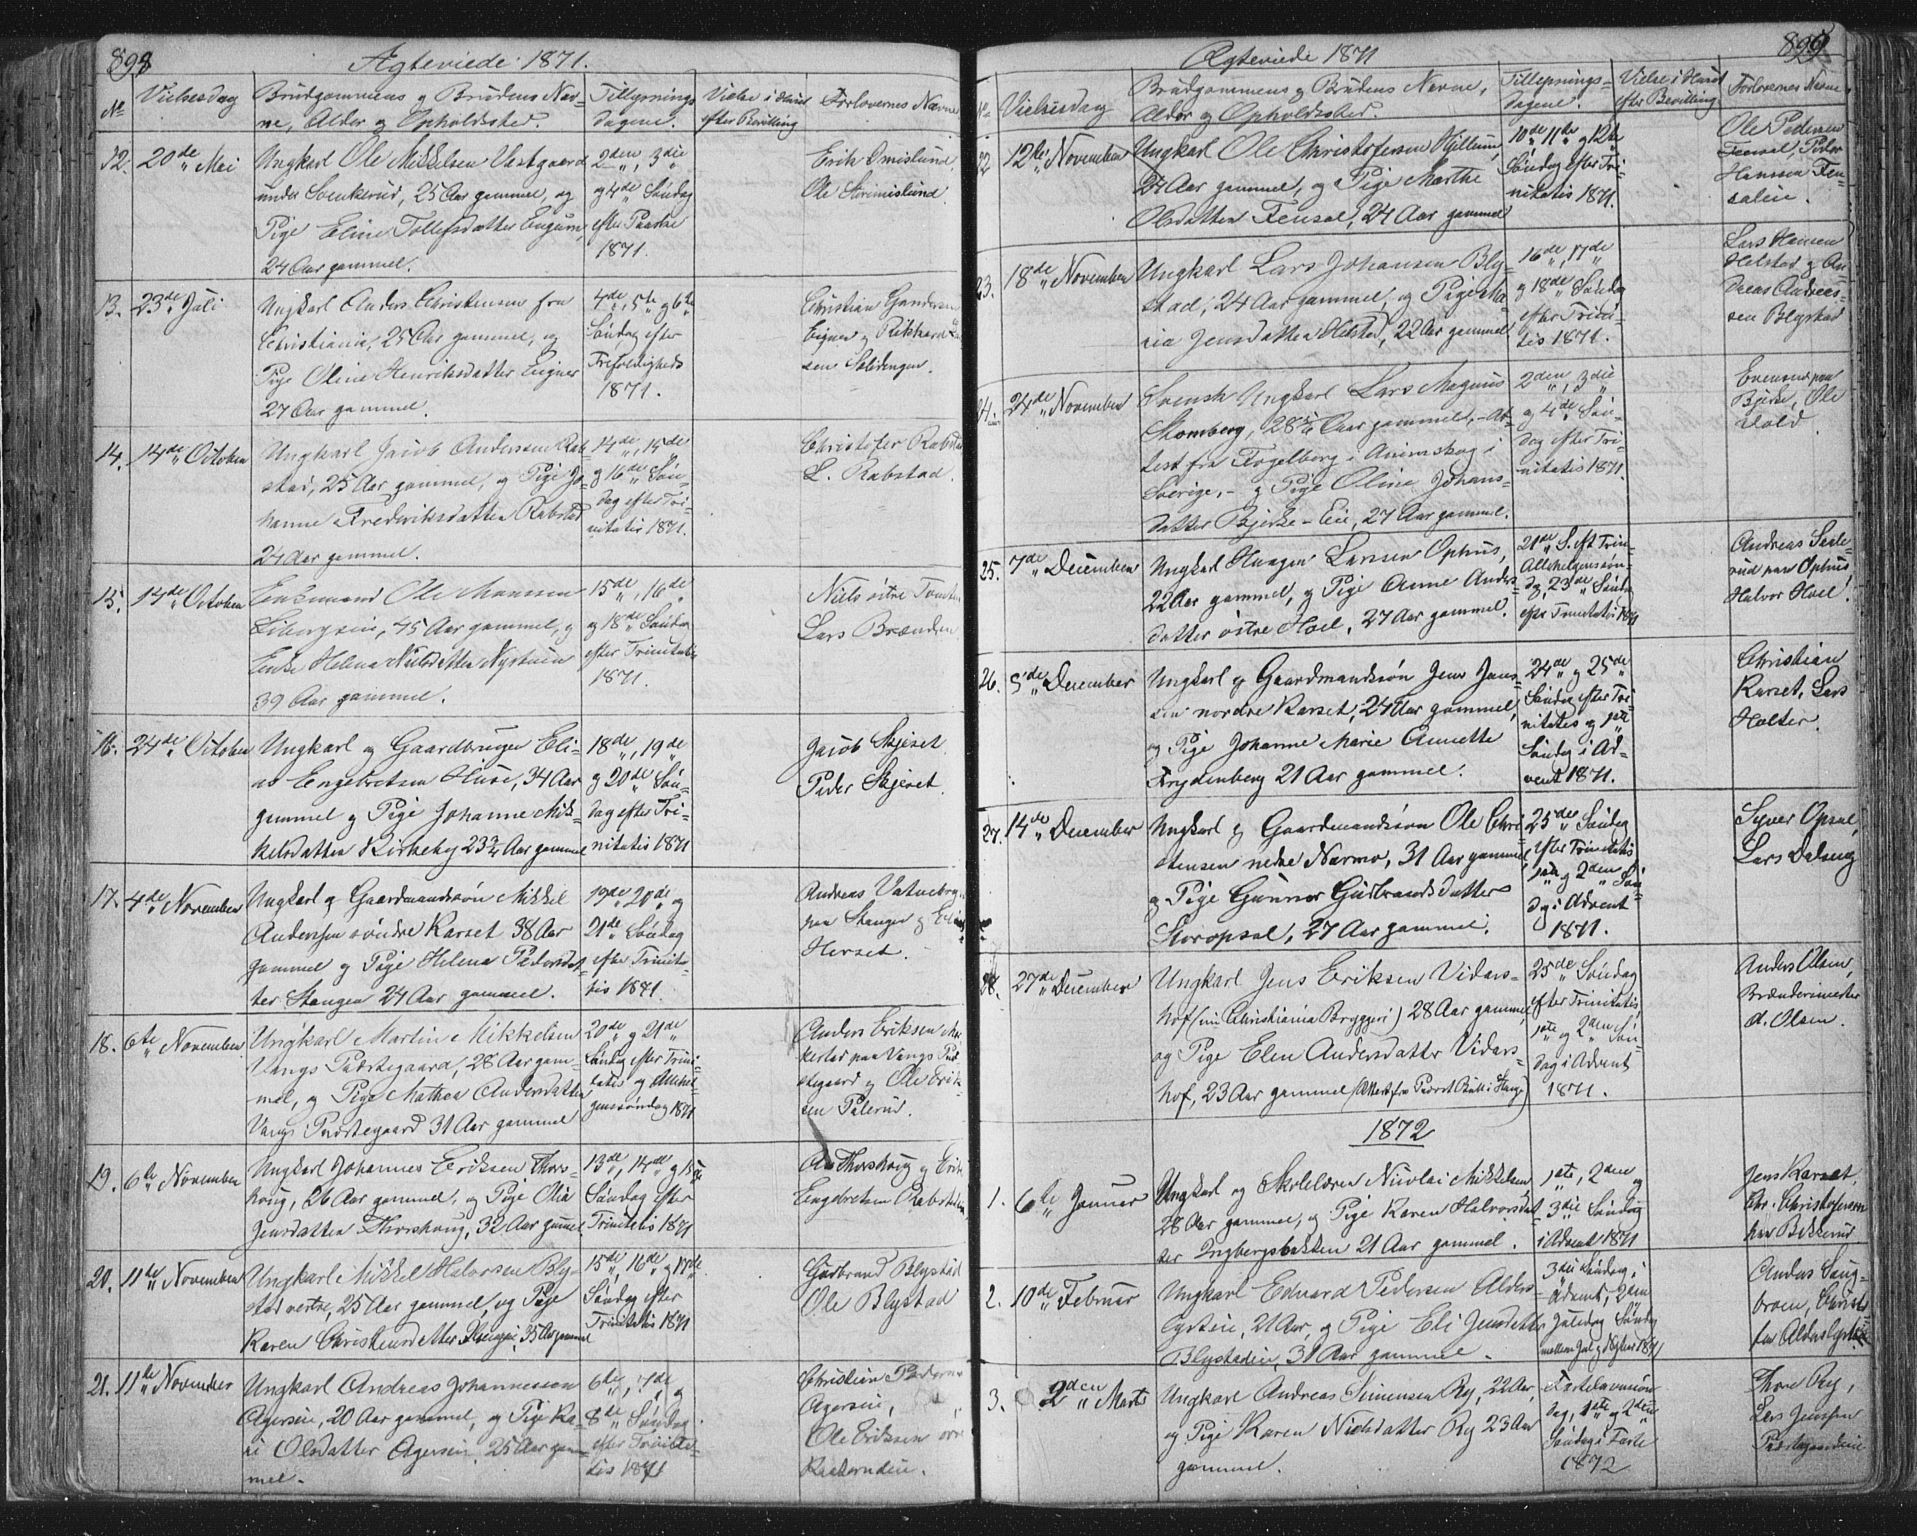 898
Ægteviede 1871.
No
Vielsesdag
Brudgommens og Brudens Nav-
ne, Alder og Opholdssted.
Tillysnings
dagene.
Vielse i Huus
efter Bevilling
Forlovernes Navne
12. 20de Mai
Ungkarl Ole Mikkelsen Vestgaard
under Svenkerud, 25 Aar gammel, og
Pige Eline Tollefsdatter Engum,
24 Aar gammel.
2den, 3die
og 4de Søndag
efter Paaske
1871.
Erik
Ole
13. 23de Juli
Ungkarl Anders Christensen fra
Christiania, 25 Aar gammel, og
Pige Oline Henriksdatter Eigner
27 Aar gammel.
4de, 5te og 6te
Søndag efter
Trefoldigheds
1871.
Christian Gundersen
Eigner og Rikhard
sen
14. 14de October
Ungkarl Jacob Andersen Rab-
stad, 25 Aar gammel, og Pige Jo-
hanne Frederiksdatter Rabstad
24 Aar gammel.
14de, 15de
og 16de Søn-
dag efter Tri-
nitatis 1871.
Christofer Rabstad
L. Rabstad.
15. 14de October
Enkemand Ole Hansen
45 Aar gammel, og
Enke Helena Nielsdatter Nystuen
39 Aar gammel.
15de, 16de
og 18de Søndag
efter Trinitatis
1871.
Niels østre
Lars Brænden
16. 24de October
Ungkarl og Gaardbruger Eli-
as Engebretsen Huse, 34 Aar
gammel og Pige Johanne Mik-
kelsdatter Kirkeby 23 3/4 Aar gammel
18de, 19de
og 20de Søn-
dag efter Tri-
nitatis 1871
Jacob Skjeset
Peder Skjeset.
17. 4de November
Ungkarl og Gaardmandssøn Mikkel
Andersen søndre Karset 38 Aar
gammel og Pige Helena Pedersdat-
ter Stangen 24 Aar gammel.
19de 20de og
21de Søndag
efter Trinita-
tis 1871.
Andreas
paa Stangen og
Herset.
18. 6te November
Ungkarl Martin Mikkelsen
Vangs Præstegaard, 28 Aar gam-
mel, og Pige Mathea Andersdatter
Vangs Præstegaard 31 Aar gammel
20de og 21de
Søndag efter Trini-
tatis og Allehel-
genssøndag 1871
Anders Eriksen
paa Vangs Præ-
stegaard og Ole Erik-
sen
19. 6te November
Ungkarl Johannes Eriksen Thors-
houg, 26 Aar gammel, og Pige Olia
Jensdatter Thorshoug, 32 Aar gammel
13de, 14de og 15de
Søndag efter
Trinitatis 1871
Thorshoug og Erik
Engebretsen
20. 11te November
Ungkarl Mikkel Halvorsen Bly-
stad vestre, 25 Aar gammel, og Pige
Karen Christensdatter 35 Aar gammel
15de, 16de og 17de
Søndag efter
Trinitatis 1871
Gudbrand Blystad
Ole Blystad
21. 11te November
Ungkarl Andreas Johannessen
Agerseie, 20 Aar gammel, og Pige Ka-
ri Olsdatter Agerseie, 25 Aar gam-
mel.
6te, 7de og
8de Søndag
efter Trinita-
tis 1871
Christian Pedersen
Agerseie,
Ole Eriksen
899
Ægteviede 1871
No
Vielsesdag
Brudgommens og Brudens Navne,
Alder og Opholdssted.
Tillysnings-
dagene.
Vielse i Huus
efter Bevilling
Forlovernes Navne
22 12te November
Ungkarl Ole Christofersen Kjillum,
24 Aar gammel, og Pige Marthe
Olsdatter Fensal, 24 Aar gammel
10de 11te og 12te
Søndag efter Tri-
nitatis 1871.
Ole Pedersen
Fensal, Peder
Hansen Fen-
saleie.
23. 18de November
Ungkarl Lars Johansen Bly-
stad, 24 Aar gammel, og Pige Ma-
ria Jensdatter Helstad, 22 Aar gammel
16de, 17de
og 18de Søndag
efter Trini-
tatis 1871.
Lars Hansen
Helstad og An-
dreas Andreas-
sen Blystad
24. 24de November
Svensk Ungkarl Lars Magnus
Stomberg, 28 Aar gammel, At-
test fra Fogelberg i Animskog i
Sverige, og Pige Oline Johans-
datter Bjerke-Eie, 27 Aar gammel.
2den, 3die
og 4de Søn-
dag efter Tri-
nitatis 1871.
Evensen paa
Bjerke, Ole
Hold
25. 7de December
Ungkarl Haagen Larsen Ophus,
22 Aar gammel, og Pige Anne Anders-
datter østre Hoel, 27 Aar gammel.
21de S. eft Trin-
Allehelgenssøn-
dag, 23de Søndag
efter Trinitatis 1871
Andreas Sæle-
rud paa Ophus
Halvor Hoel.
26. 5de December
Ungkarl og Gaardmandssøn Jens Jens-
sen nordre Karset, 24 Aar gammel,
og Pige Johanne Marie Annette
Frydenberg 21 Aar gammel.
24de og 25de
Søndag efter Tri-
nitatis og 1ste
Søndag i Ad-
vent 1871.
Christian
Karset, Lars
Holter.
27. 14de December
Ungkarl og Gaardmandssøn Ole Chri-
stensen nedre Narmo, 31 Aar gammel,
og Pige Gunnor Gudbrandsdatter
Storopsal, 27 Aar gammel.
25de Søndag
efter Trinitatis
1ste og 2den Søn-
dag i Advent
1871.
Syver Opsal,
Lars Dalseng
28. 27de December
Ungkarl Jens Eriksen Vidars-
hof (nu Christiania Bryggeri) 28 Aar gammel,
og Pige Elen Andersdatter Vidars-
hof, 23 Aar gammel (Attest fra Præst)
25de Søndag
efter Trinitatis
1ste og 2den Søn-
dag i Advent
1871.
Anders Olsen,
Brænderimester
A. Olsen.
1872
1. 6te Januar
Ungkarl og Skolelærer Nicolai Mikkelsen
28 Aar gammel, og Pige Karen Halvorsdat-
ter Ingbergsbakken 21 Aar gammel.
1ste, 2den og
3die Søndag
i Advent 1871
Jens Karset,
Chr. Christofersen
paa Bekkerud
2. 10de Februar
Ungkarl Edvard Pedersen Alders-
lysteie, 21 Aar, og Pige Eli Jensdatter
Blystadeie, 31 Aar gammel.
3die Søndag i
Advent, 2den
Juledag Søndag
mellem Jul og Nytaar 1871
Anders Saug-
broen, Christo-
fer Alderslysteie
3. 2den Marts
Ungkarl Andreas Simensen Ry, 22 Aar,
og Pige Karen Nielsdatter Ry 23 Aar
gammel.
Fastelavnssøn
dag, 1ste og 2den
Søndag i Faste
1872
Thore Ry,
Lars Jensen
Præstegaardseie